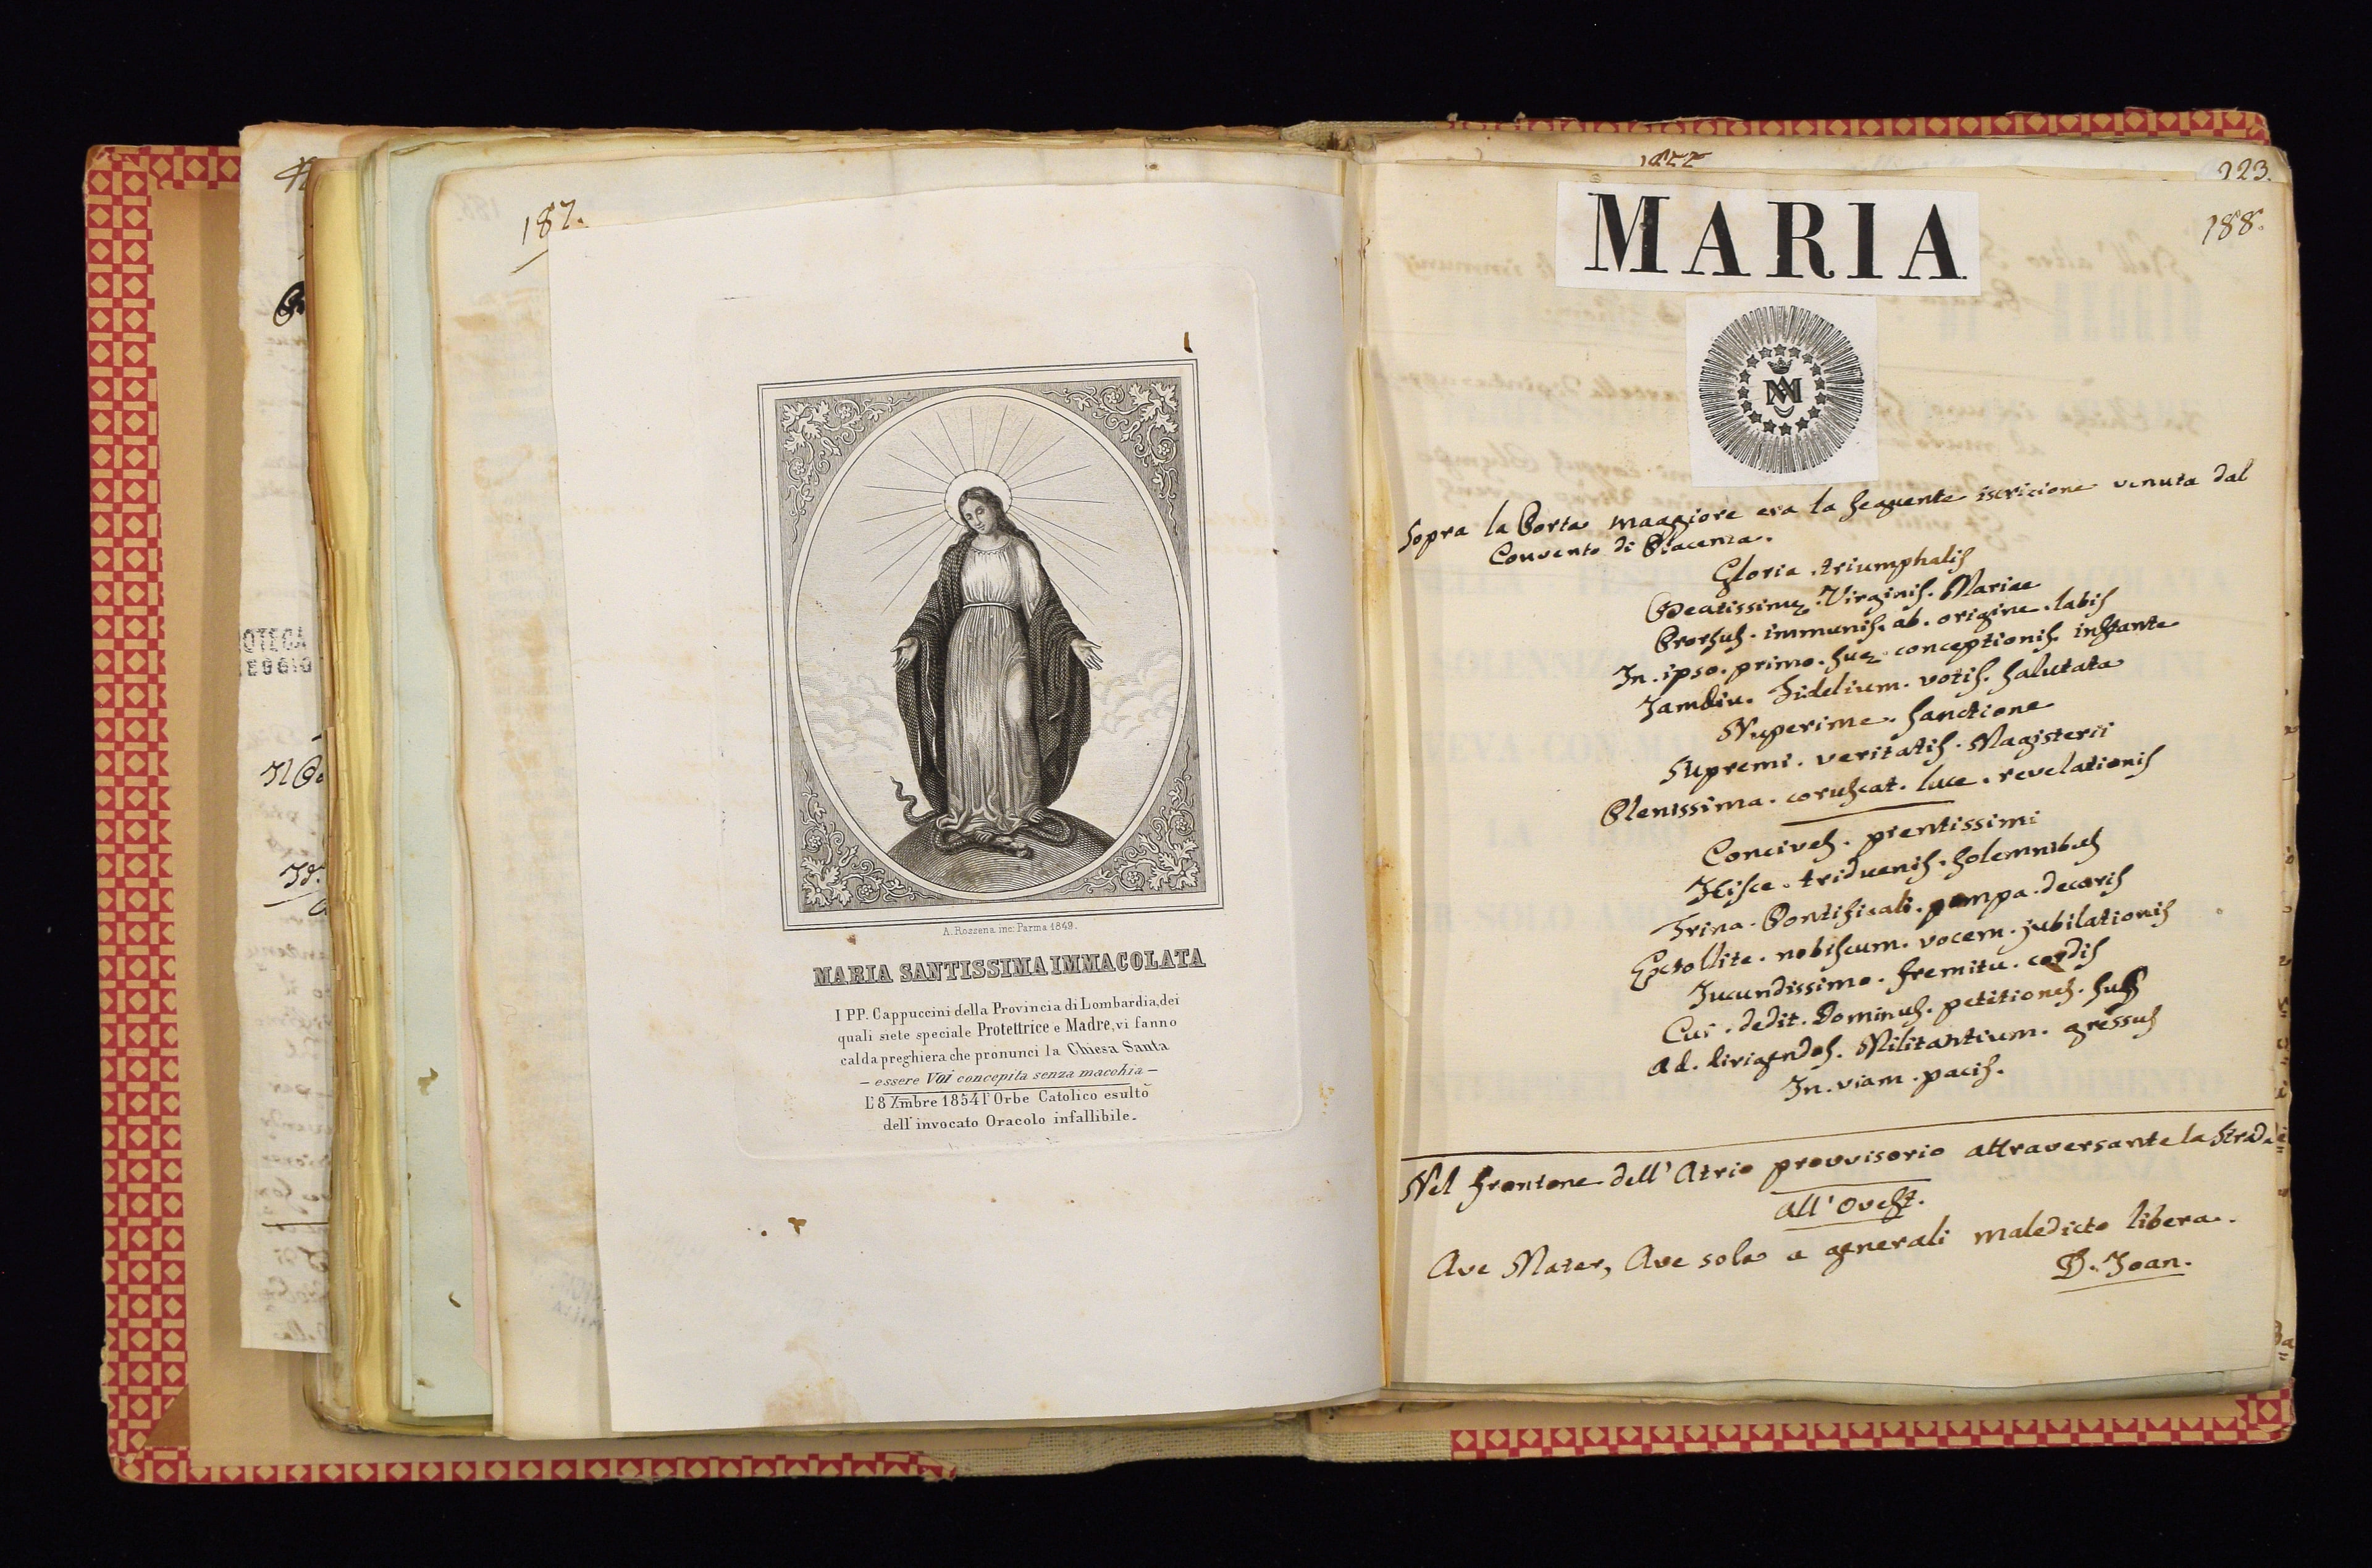 187.
A. Rossena inc: Parma 1849.
MARIA SANTISSIMA IMMACOLATA
I PP. Cappuccini della Provincia di Lombardia, dei
quali siete speciale Protettrice e Madre, vi fanno
calda preghiera che pronunci la Chiesa Santa
– essere Voi concepita senza macchia –
L'8 Xmbre 1854 l'Orbe Catolico esultò
dell'invocato Oracolo infallibile.
OTECA
EGGIO
223.
188.
MARIA
Sopra la Porta maggiore era la seguente iscrizione venuta dal
Convento di Piacenza.
Gloria . triumphalis
Beatissimę . Virginis . Mariae
Prorsus . immunis . ab . origine . labis
In . ipso . primo . suę . conceptionis . instante
Jamdiu . Fidelium . votis . salutata
Nuperime . sanctione
Supremi . veritatis . Magisterii
Plenissima . coruscat . luce . revelationis
Concives . pientissimi
Hisce . triduenis . solemnibus
Trina . Pontificali . pompa . decoris
Extollite . nobiscum . vocem . jubilationis
Jucundissimo . fremitu . cordis
Cui . dedit . Dominus . petitiones . suas
Ad . dirigendos . Militantium . gressus
In . viam . pacis .
Nel frontone dell'Atrio provvisorio attraversante la strada
all'Ovest.
Ave Mater, Ave sola a generali maledicto libera.
D. Joan.